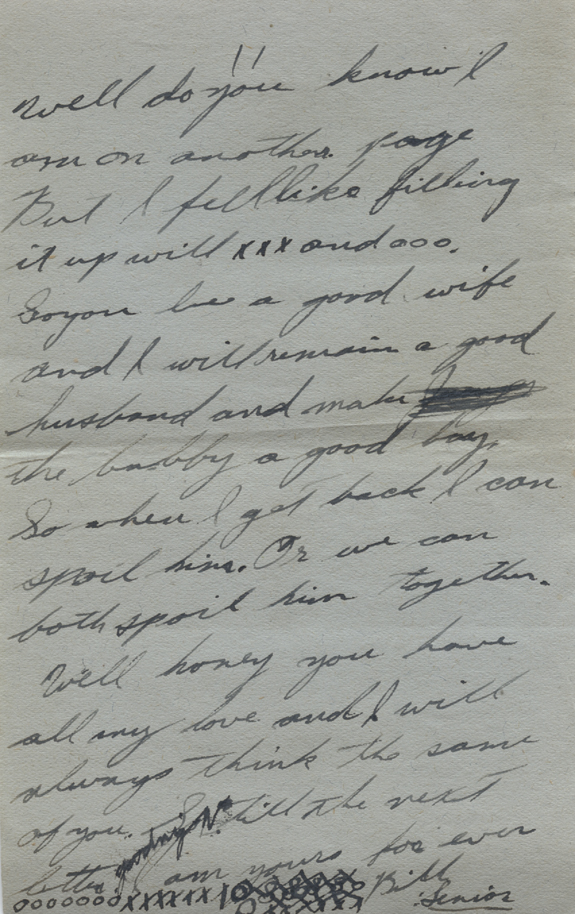 !!
Well do you know I
am on another page
But I fell like filling
it up will xxx and ooo.
So you be a good wife
and I will remain a good
husband and make
the bubby a good boy,
So when I get back I can
spoil him. Or we can
both spoil him together.
Well honey you have
all my love and I will
always think the same
of you. till the next
letter I am yours for ever
Bill
Senior